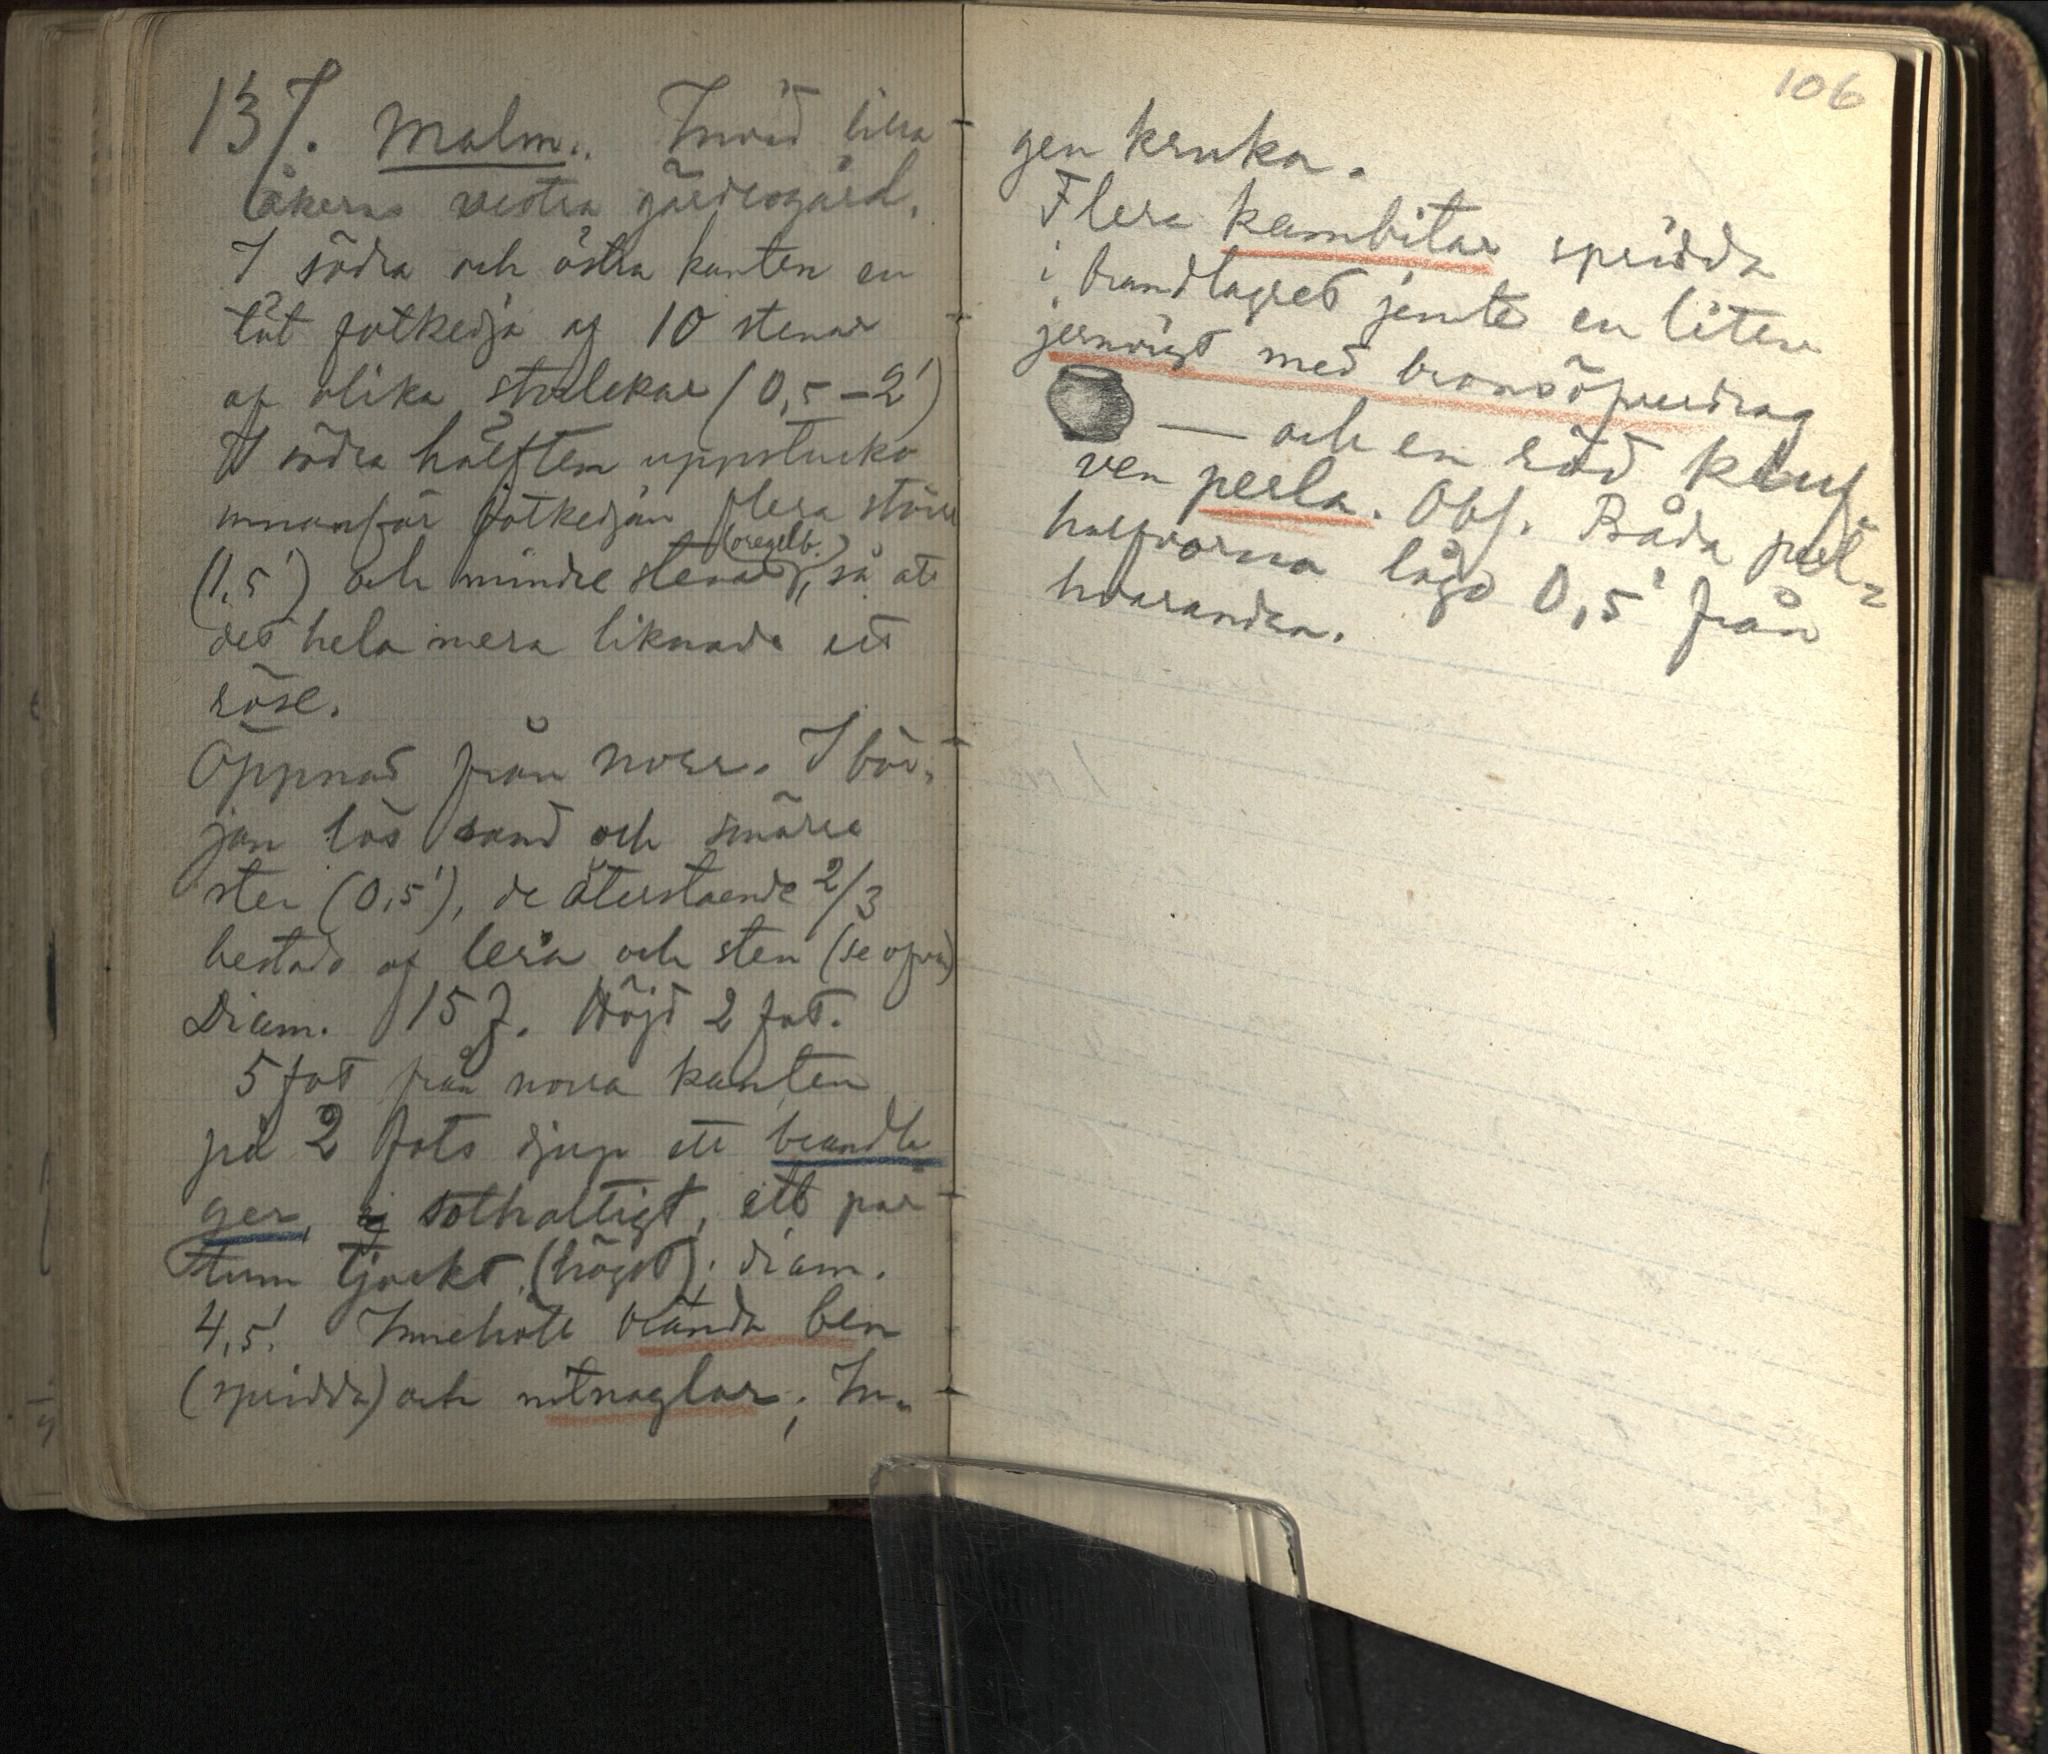 137. Malm. Invid lilla
åkerns vestra gärdesgård.
I södra och östra kanten en
tät fotkedja af 10 stenar
af olika storlekar (0,5–2')
I södra hälften uppstucko
innanför fotkedjan flera större
(oregelb.)
(1,5') och mindre stenar, så att
det hela mera liknade ett
röse.
Öppnad från norr. I bör-
jan lös sand och smärre
sten (0,5'), de återstående 2/3
bestodo af lera och sten (se ofvan)
Diam. 15 f. Höjd 2 fot.
5 fot från norra kanten
på 2 fots djup ett brandla
ger, ej sothaltigt, ett par
tum tjockt (högst); diam.
4,5'. Innehöll brända ben
(spridda) och nitnaglar; In-
106
gen kruka.
Flera kambitar spridda
i brandlagret jemte en liten
jernvigt med bronsöfverdrag
— och en röd kluf-
ven perla. Obs. Båda perl-
halfvorna lågo 0,5' från
hvarandra.